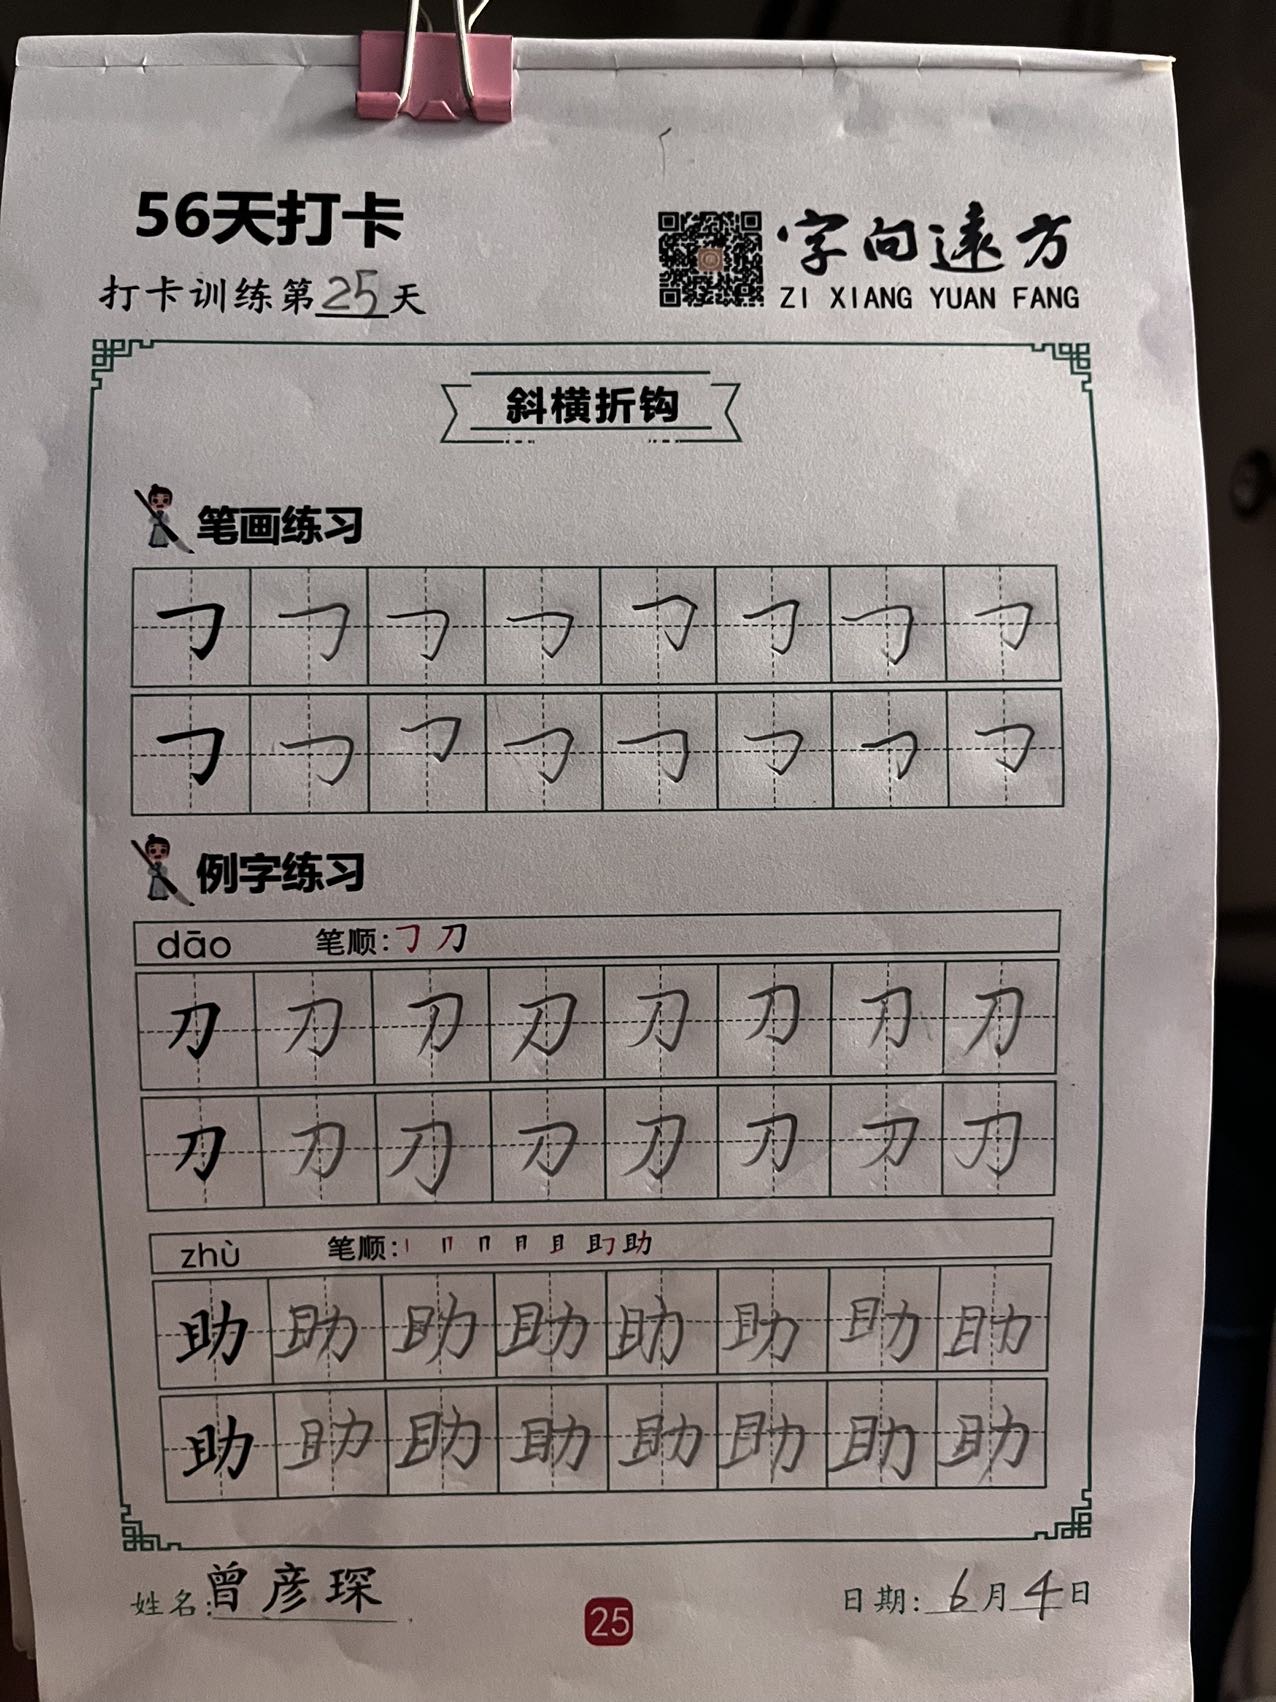 56天打卡
打卡训练第25天
字向遠方
ZI XIANG YUAN FANG
斜横折钩
笔画练习
㇆ ㇆ ㇆ ㇆ ㇆ ㇆ ㇆ ㇆
㇆ ㇆ ㇆ ㇆ ㇆ ㇆ ㇆ ㇆
例字练习
dāo 笔顺:㇆ 刀
刀 刀 刀 刀 刀 刀 刀 刀
刀 刀 刀 刀 刀 刀 刀 刀
zhù 笔顺:丨 冂 冂 月 且 助 助
助 助 助 助 助 助 助 助
助 助 助 助 助 助 助 助
姓名:曾彦琛
25
日期:6月4日